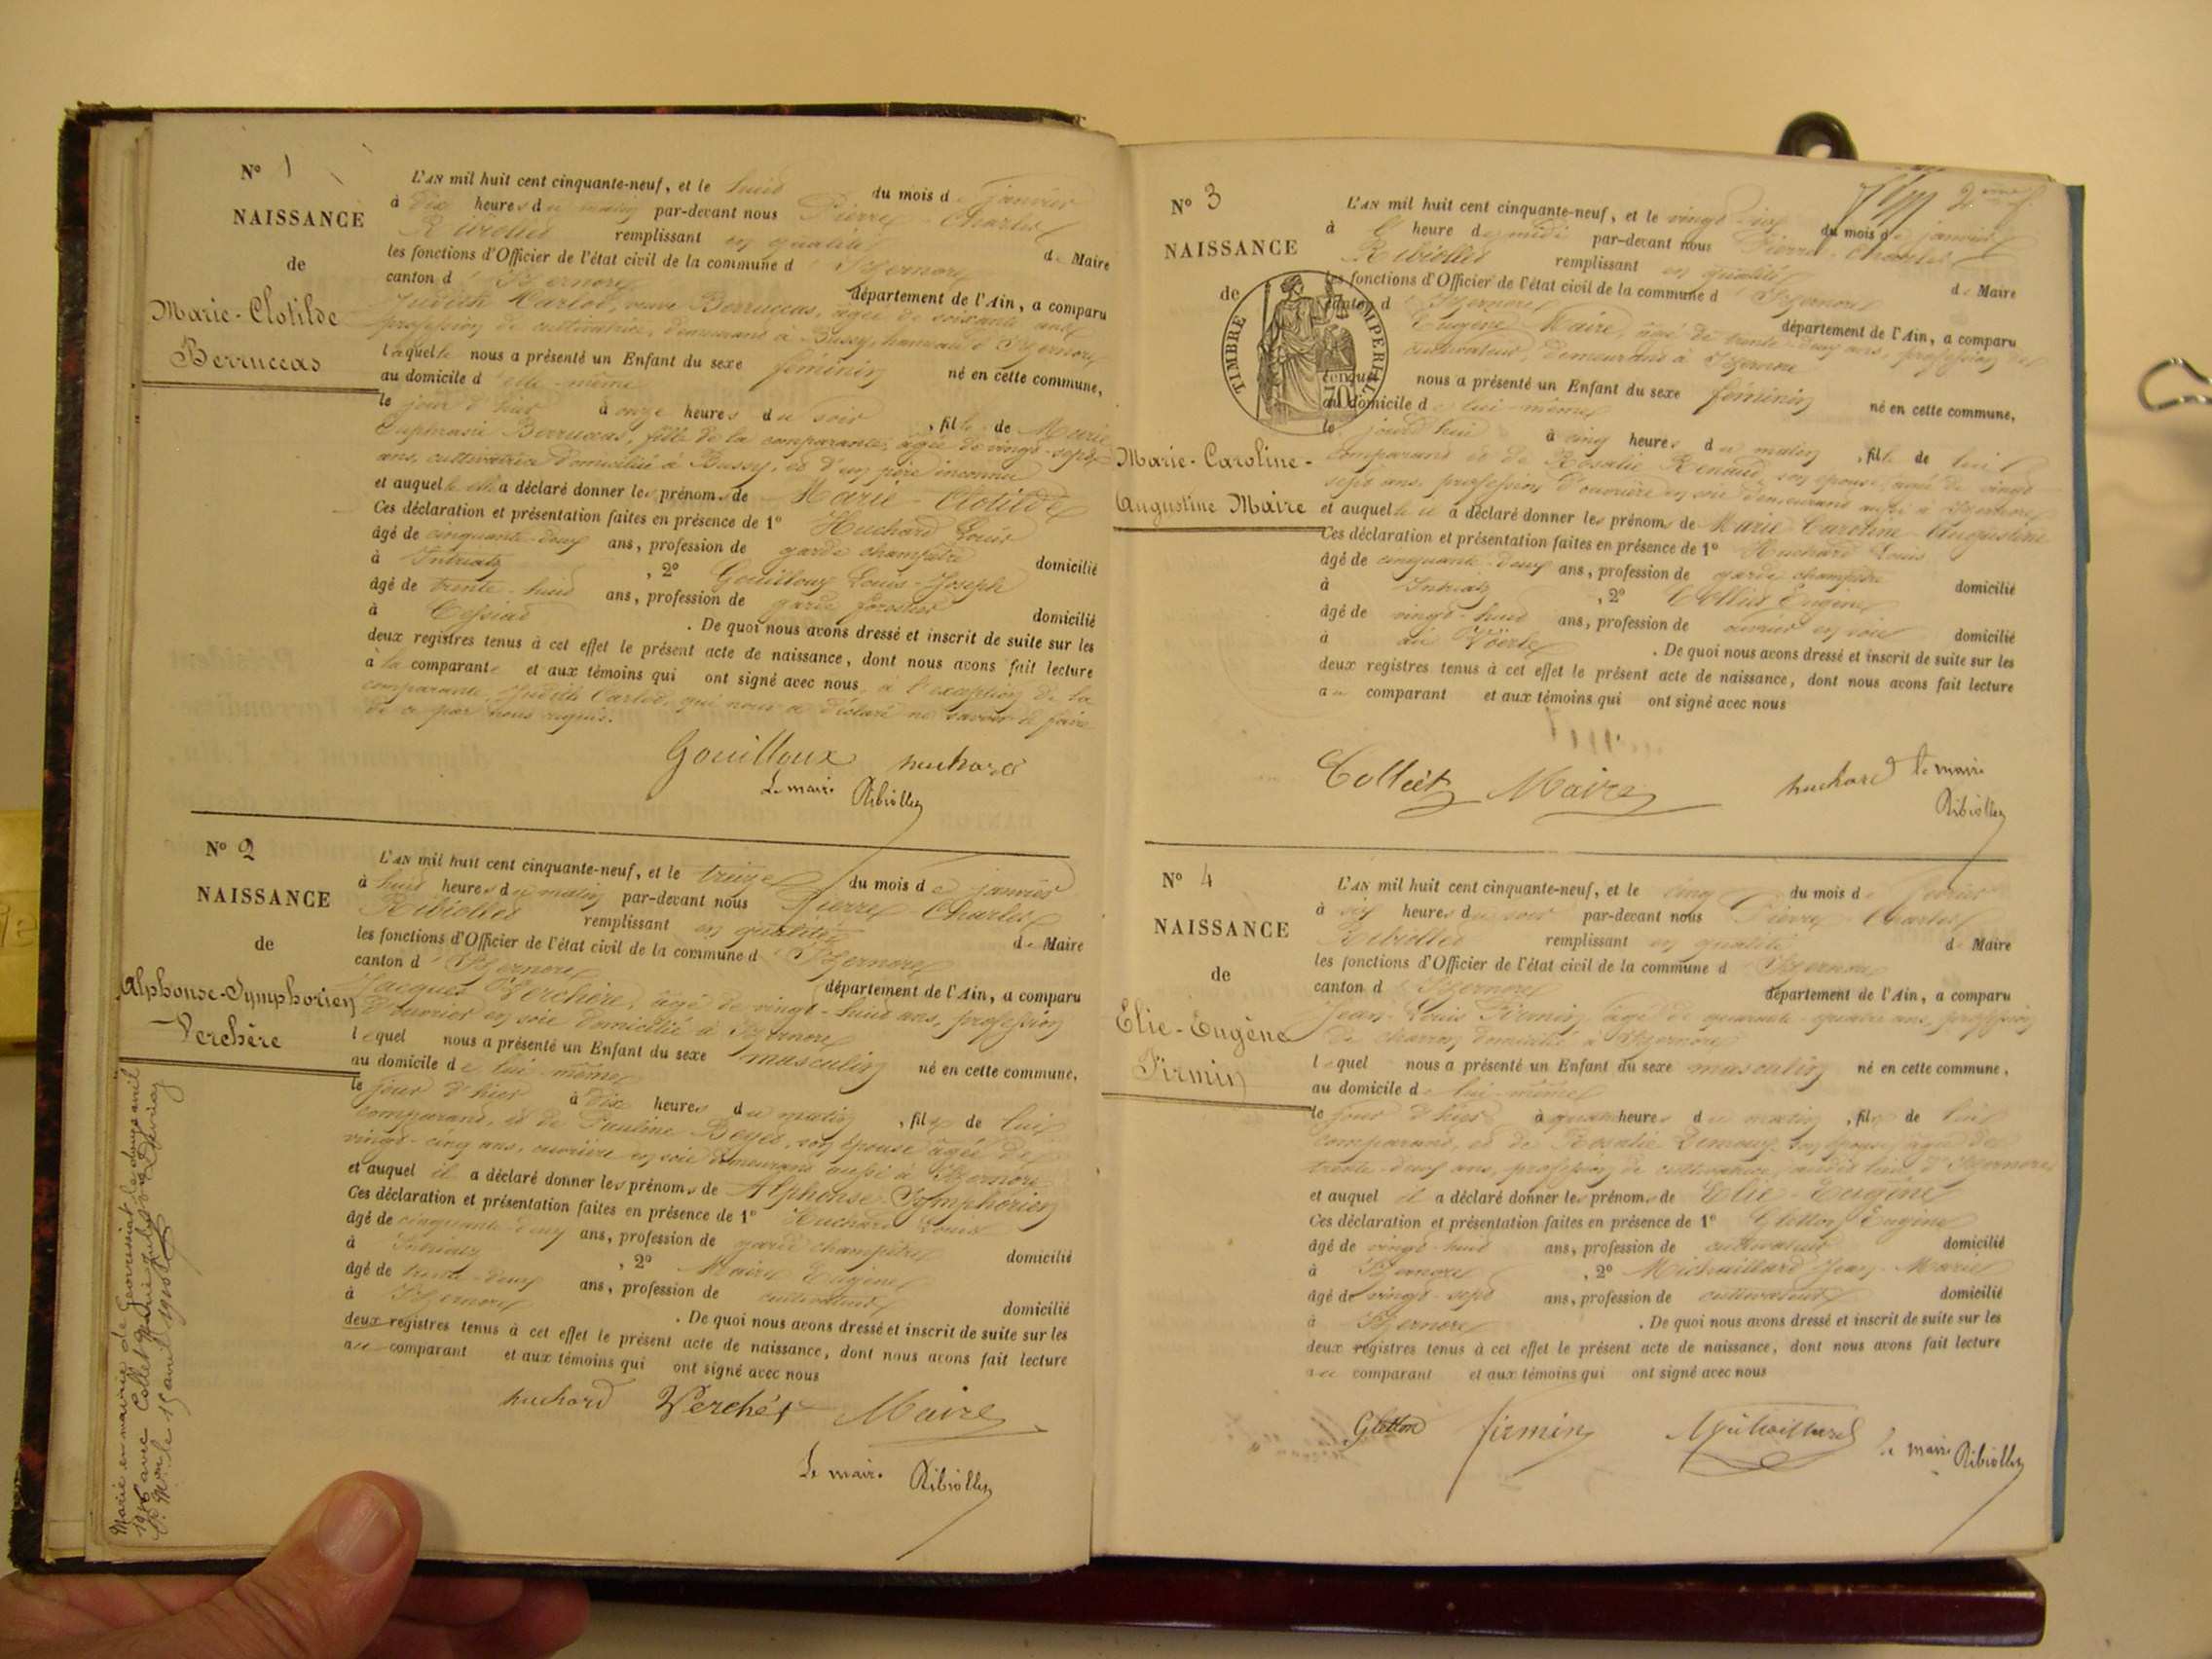 N° 1
NAISSANCE
de
Marie-Clotilde
Berruccas
L'AN mil huit cent cinquante-neuf, et le huit du mois de janvier
à dix heures du matin par-devant nous Pierre-Charles
Ribiollet remplissant en qualité de Maire
les fonctions d'Officier de l'état civil de la commune d'Izernore
canton d'Izernore département de l'Ain, a comparu
Judith Carlod, veuve Berruccas, âgée de soixante ans
profession de cultivatrice, demeurant à Bussy, hameau d'Izernore
laquelle nous a présenté un Enfant du sexe féminin né en cette commune,
au domicile d'elle-même
le jour d'hier à onze heures du soir, fille de Marie
Euphrasie Berruccas, fille de la comparante, âgée de vingt-sept
ans, cultivatrice domiciliée à Bussy, et d'un père inconnu
et auquel elle a déclaré donner les prénoms de Marie-Clotilde
Ces déclaration et présentation faites en présence de 1° Huchard Louis
âgé de cinquante-deux ans, profession de garde champêtre domicilié
à Intriatz, 2° Gouilloux Louis-Joseph
âgé de trente-huit ans, profession de garde forestier domicilié
à Ceyssiat. De quoi nous avons dressé et inscrit de suite sur les
deux registres tenus à cet effet le présent acte de naissance, dont nous avons fait lecture
à la comparante et aux témoins qui ont signé avec nous, à l'exception de la
comparante, Judith Carlod, qui nous a déclaré ne savoir le faire
de ce par nous requise.
Gouilloux huchard
Le maire Ribiollet
N° 2
NAISSANCE
de
Alphonse-Symphorien
Verchère
L'AN mil huit cent cinquante-neuf, et le treize du mois de janvier
à huit heures du matin par-devant nous Pierre-Charles
Ribiollet remplissant en qualité de Maire
les fonctions d'Officier de l'état civil de la commune d'Izernore
canton d'Izernore département de l'Ain, a comparu
Jacques Verchère, âgé de vingt-huit ans, profession
d'ouvrier en soie domicilié à Izernore
lequel nous a présenté un Enfant du sexe masculin né en cette commune,
au domicile de lui-même
le jour d'hier à dix heures du matin, fils de lui
comparant, et de Pauline Beyet, son épouse âgée de
vingt-cinq ans, ouvrière en soie demeurant aussi à Izernore
et auquel il a déclaré donner les prénoms de Alphonse-Symphorien
Ces déclaration et présentation faites en présence de 1° Huchard Louis
âgé de cinquante-deux ans, profession de garde champêtre domicilié
à Intriatz, 2° Maire Eugène
âgé de trente-deux ans, profession de cultivateur domicilié
à Izernore. De quoi nous avons dressé et inscrit de suite sur les
deux registres tenus à cet effet le présent acte de naissance, dont nous avons fait lecture
au comparant et aux témoins qui ont signé avec nous
huchard Verchère Maire
Le maire Ribiollet
Marié en mairie de Geovreissiat le douze avril
1916 avec Collet Marie
le 15 avril
N° 3
NAISSANCE
de
TIMBRE IMPERIAL
70
Marie-Caroline-
Augustine Maire
2me f.
L'AN mil huit cent cinquante-neuf, et le vingt-six du mois de janvier
à heure de midi par-devant nous Pierre-Charles
Ribiollet remplissant en qualité de Maire
les fonctions d'Officier de l'état civil de la commune d'Izernore
canton d'Izernore département de l'Ain, a comparu
Eugène Maire, âgé de trente-deux ans, profession de
cultivateur, demeurant à Izernore
lequel nous a présenté un Enfant du sexe féminin né en cette commune,
au domicile de lui-même
le jourd'hui à cinq heures du matin, fille de lui
comparant et de Rosalie Renaud, son épouse, âgée de vingt-
sept ans, profession d'ouvrière en soie demeurant aussi à Izernore
et auquel il a déclaré donner les prénoms de Marie Caroline Augustine
Ces déclaration et présentation faites en présence de 1° Huchard Louis
âgé de cinquante-deux ans, profession de garde champêtre domicilié
à Intriatz, 2° Collet Eugène
âgé de vingt-huit ans, profession de ouvrier en soie domicilié
à au Voërle. De quoi nous avons dressé et inscrit de suite sur les
deux registres tenus à cet effet le présent acte de naissance, dont nous avons fait lecture
au comparant et aux témoins qui ont signé avec nous
Collet Maire huchard le maire
Ribiollet
N° 4
NAISSANCE
de
Elie-Eugène
Firmin
L'AN mil huit cent cinquante-neuf, et le cinq du mois de février
à six heures du soir par-devant nous Pierre-Charles
Ribiollet remplissant en qualité de Maire
les fonctions d'Officier de l'état civil de la commune d'Izernore
canton d'Izernore département de l'Ain, a comparu
Jean-Louis Firmin, âgé de quarante-quatre ans, profession
de charron domicilié à Izernore
lequel nous a présenté un Enfant du sexe masculin né en cette commune,
au domicile de lui-même
le jour d'hier à quatre heures du matin, fils de lui
comparant, et de Rosalie son épouse, âgée de
trente-deux ans, profession de cultivatrice, audit lieu d'Izernore
et auquel il a déclaré donner les prénoms de Elie-Eugène
Ces déclaration et présentation faites en présence de 1° Gletton Eugène
âgé de vingt-huit ans, profession de cultivateur domicilié
à Izernore, 2° Michaillard Jean-Marie
âgé de vingt-sept ans, profession de cultivateur domicilié
à Izernore. De quoi nous avons dressé et inscrit de suite sur les
deux registres tenus à cet effet le présent acte de naissance, dont nous avons fait lecture
au comparant et aux témoins qui ont signé avec nous
Gletton firmin Michaillard le maire Ribiollet